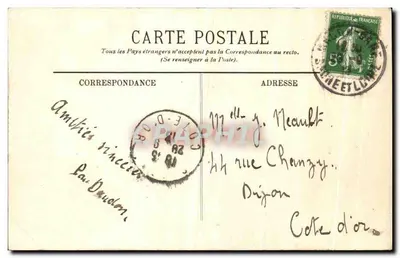 CARTE POSTALE
Tous les Pays étrangers n'acceptent pas la Correspondance au recto.
(Se renseigner à la Poste).
CORRESPONDANCE
ADRESSE
REPUBLIQUE FRANÇAISE
5c
SAONE ET LOIRE
COTE-D'OR
Amitiés sincères
Mlle J. Neault
44 rue Chanzy
Dijon
Cote d'or